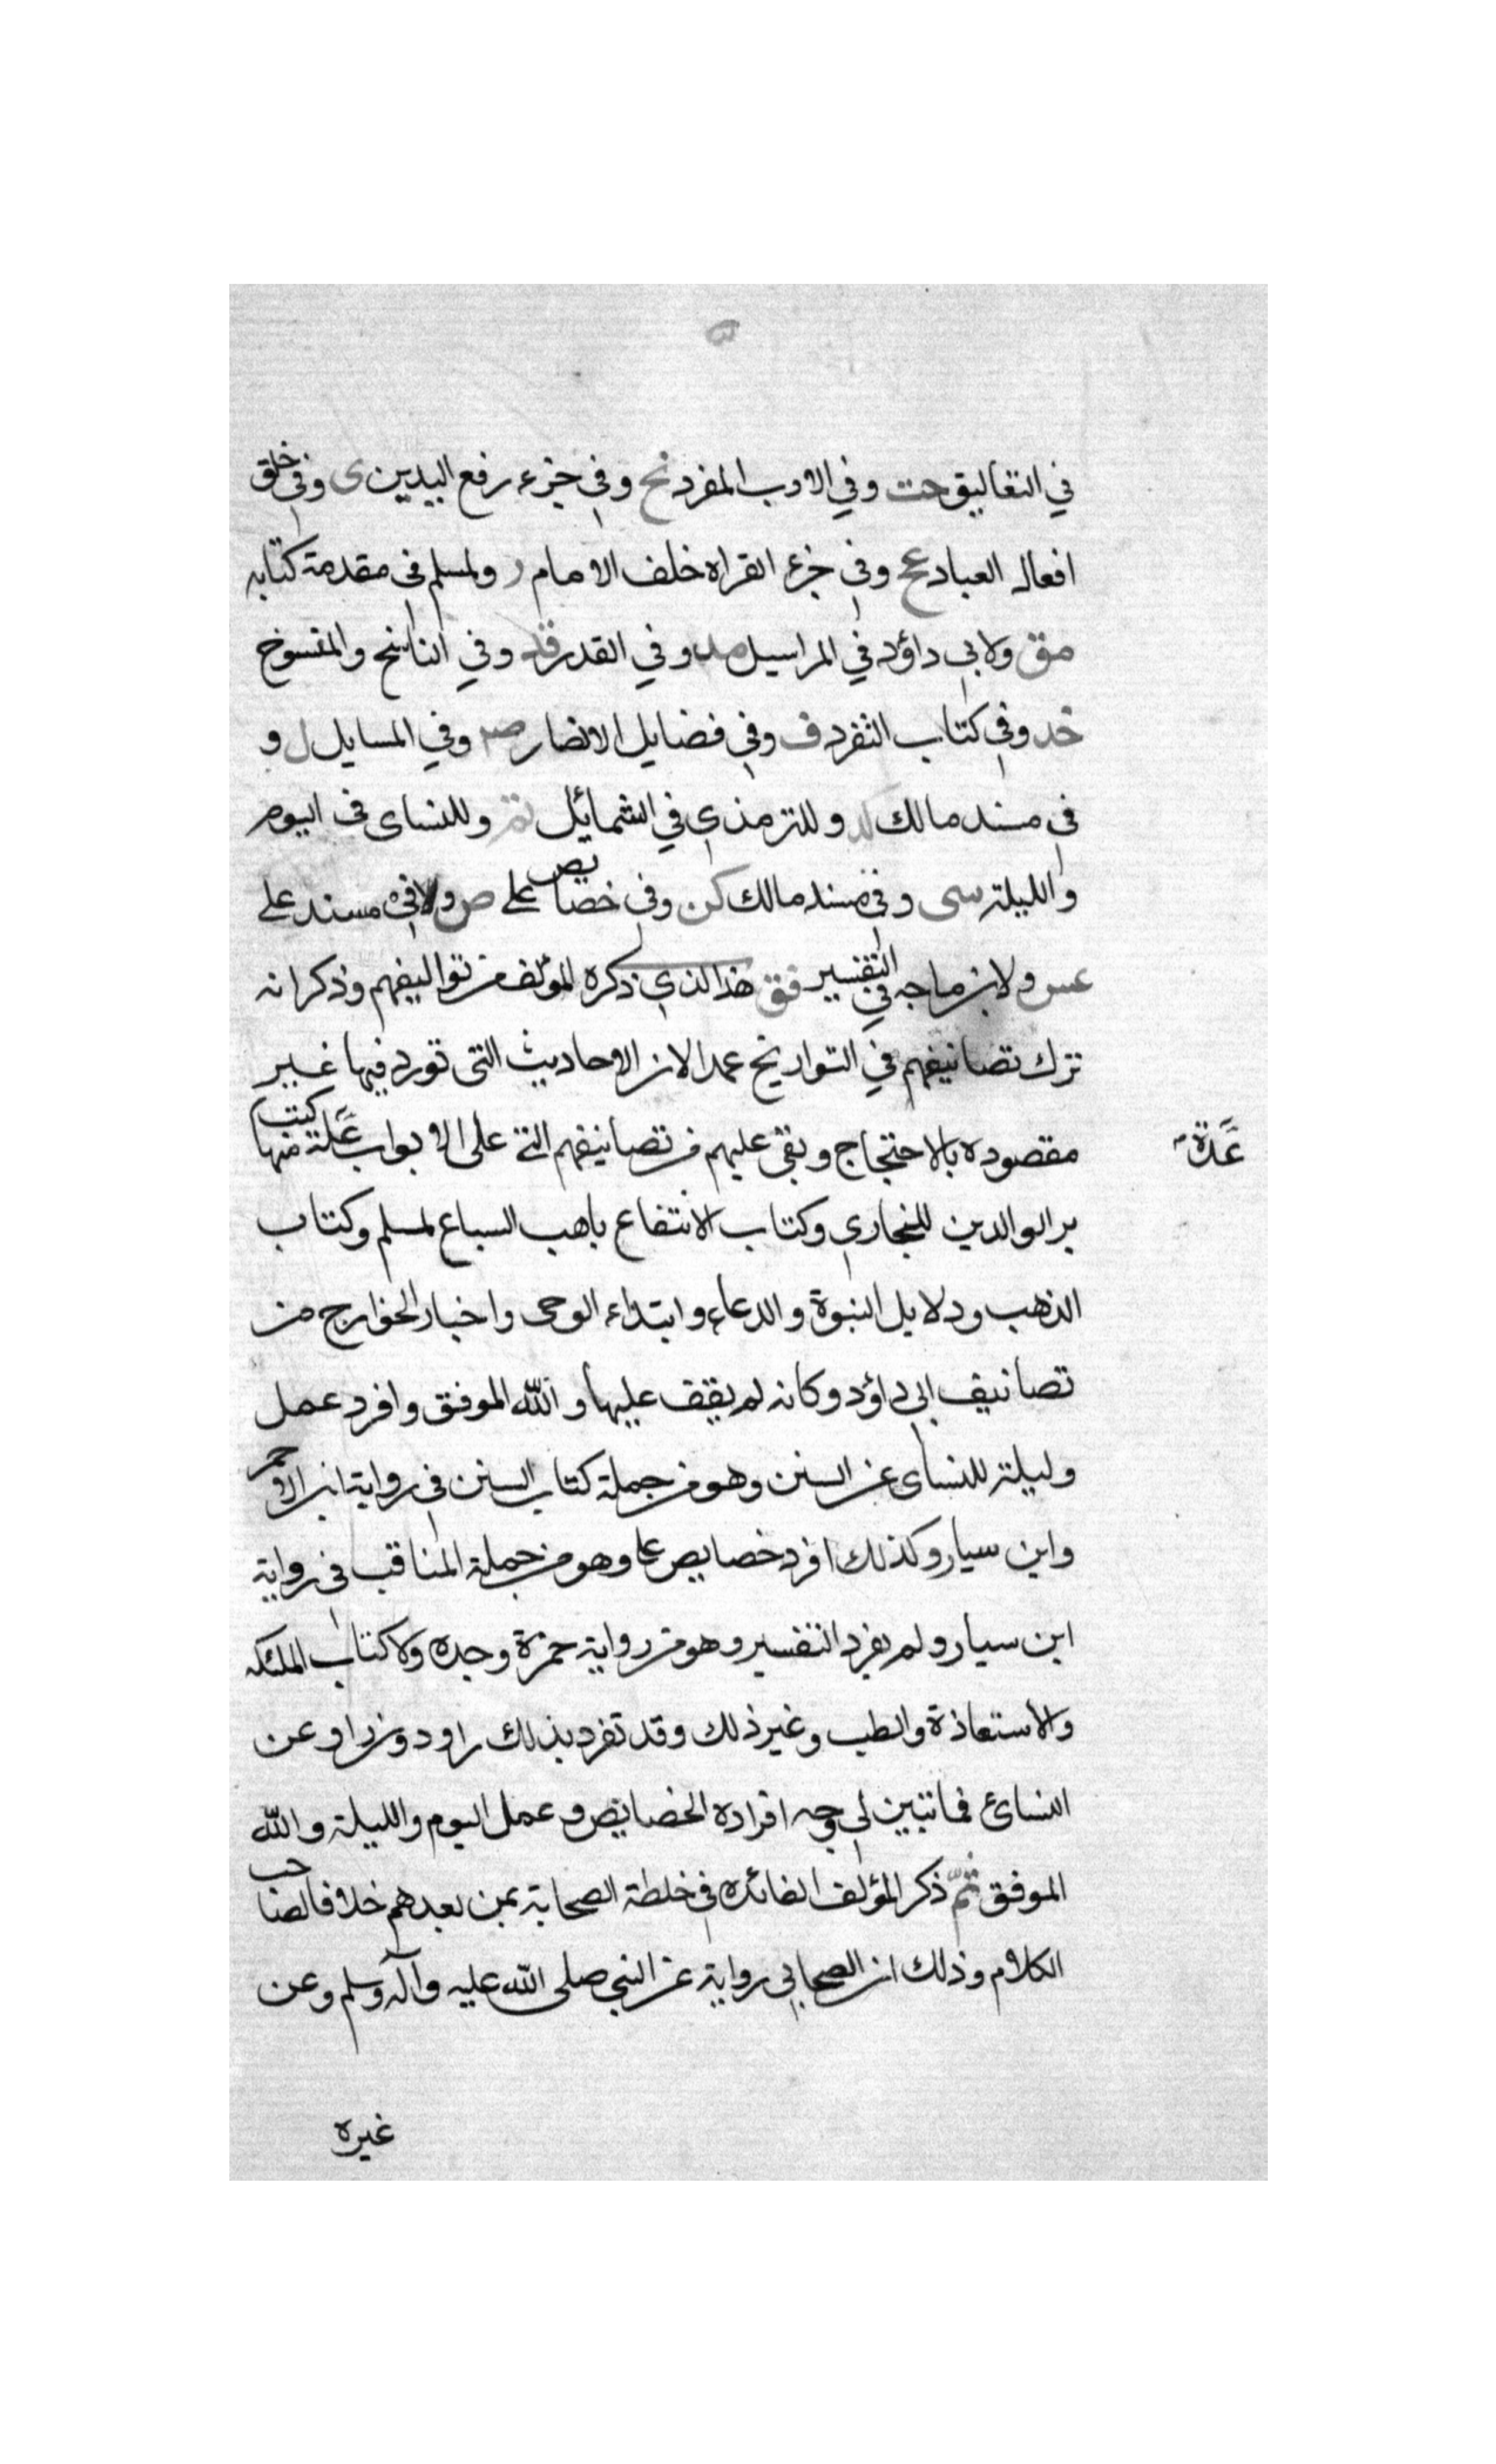 في التعاليق خت وفي الادب المفرد بخ وفي جزء رفع اليدين ى وفي خلق
افعال العباد عخ وفي جزء القراه خلف الامام ر ولمسلم فى مقدمة كتابه
مق ولابي داؤد في المراسيل مد وفي القدر قد وفي الناسخ والمنسوخ
خد وفي كتاب التفرد ف وفي فضايل الانصار صد وفي المسايل ل و
فى مسند مالك كد وللترمذي في الشمائل تم وللنساى فى اليوم
والليلة سى وفي مسند مالك كن وفي خصايص على ص وفي مسند على
عس ولابن ماجه في التفسير فق هذا الذي ذكره المؤلف من تواليفهم وذكر انه
ترك تصانيفهم في التواريخ عمدا لان الاحاديث التى تورد فيها غير
مقصوده بالاحتجاج وبقى عليهم من تصانيفهم التى على الابواب عدة كتب منها
عدة
بر الوالدين للبخاري وكتاب الانتفاع باهب السباع لمسلم وكتاب
الذهب ودلايل النبوة والدعاء وابتداء الوحى واخبار الخوارج من
تصانيف ابى داؤد وكانه لم يقف عليها والله الموفق وافرد عمل
وليلة للنساى عن السنن وهو من جملة كتاب السنن فى رواية ابن الاحمر
وابن سيار وكذلك افرد خصايص على وهو من جملة المناقب فى رواية
ابن سيار ولم يفرد التفسير وهو من رواية حمزة وحده ولا كتاب الملئكه
والاستعاذة والطب وغير ذلك وقد تفرد بذلك راو دون راو عن
النسائ فما تبين لى وجه افراده الخصايص وعمل اليوم والليلة والله
الموفق ثم ذكر المؤلف الفائده فى خلطة الصحابة بمن بعدهم خلافا لصاحب
الكلام وذلك ان للصحابي رواية عن النبى صلى الله عليه وآله وسلم وعن
غيره